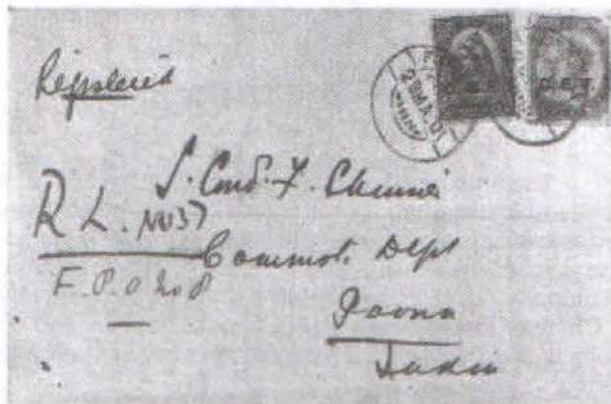 Registered
C.E.F
S. Cond. F.
R L. No 37
Commst. Dept
F.P.O No 8
Poona
India